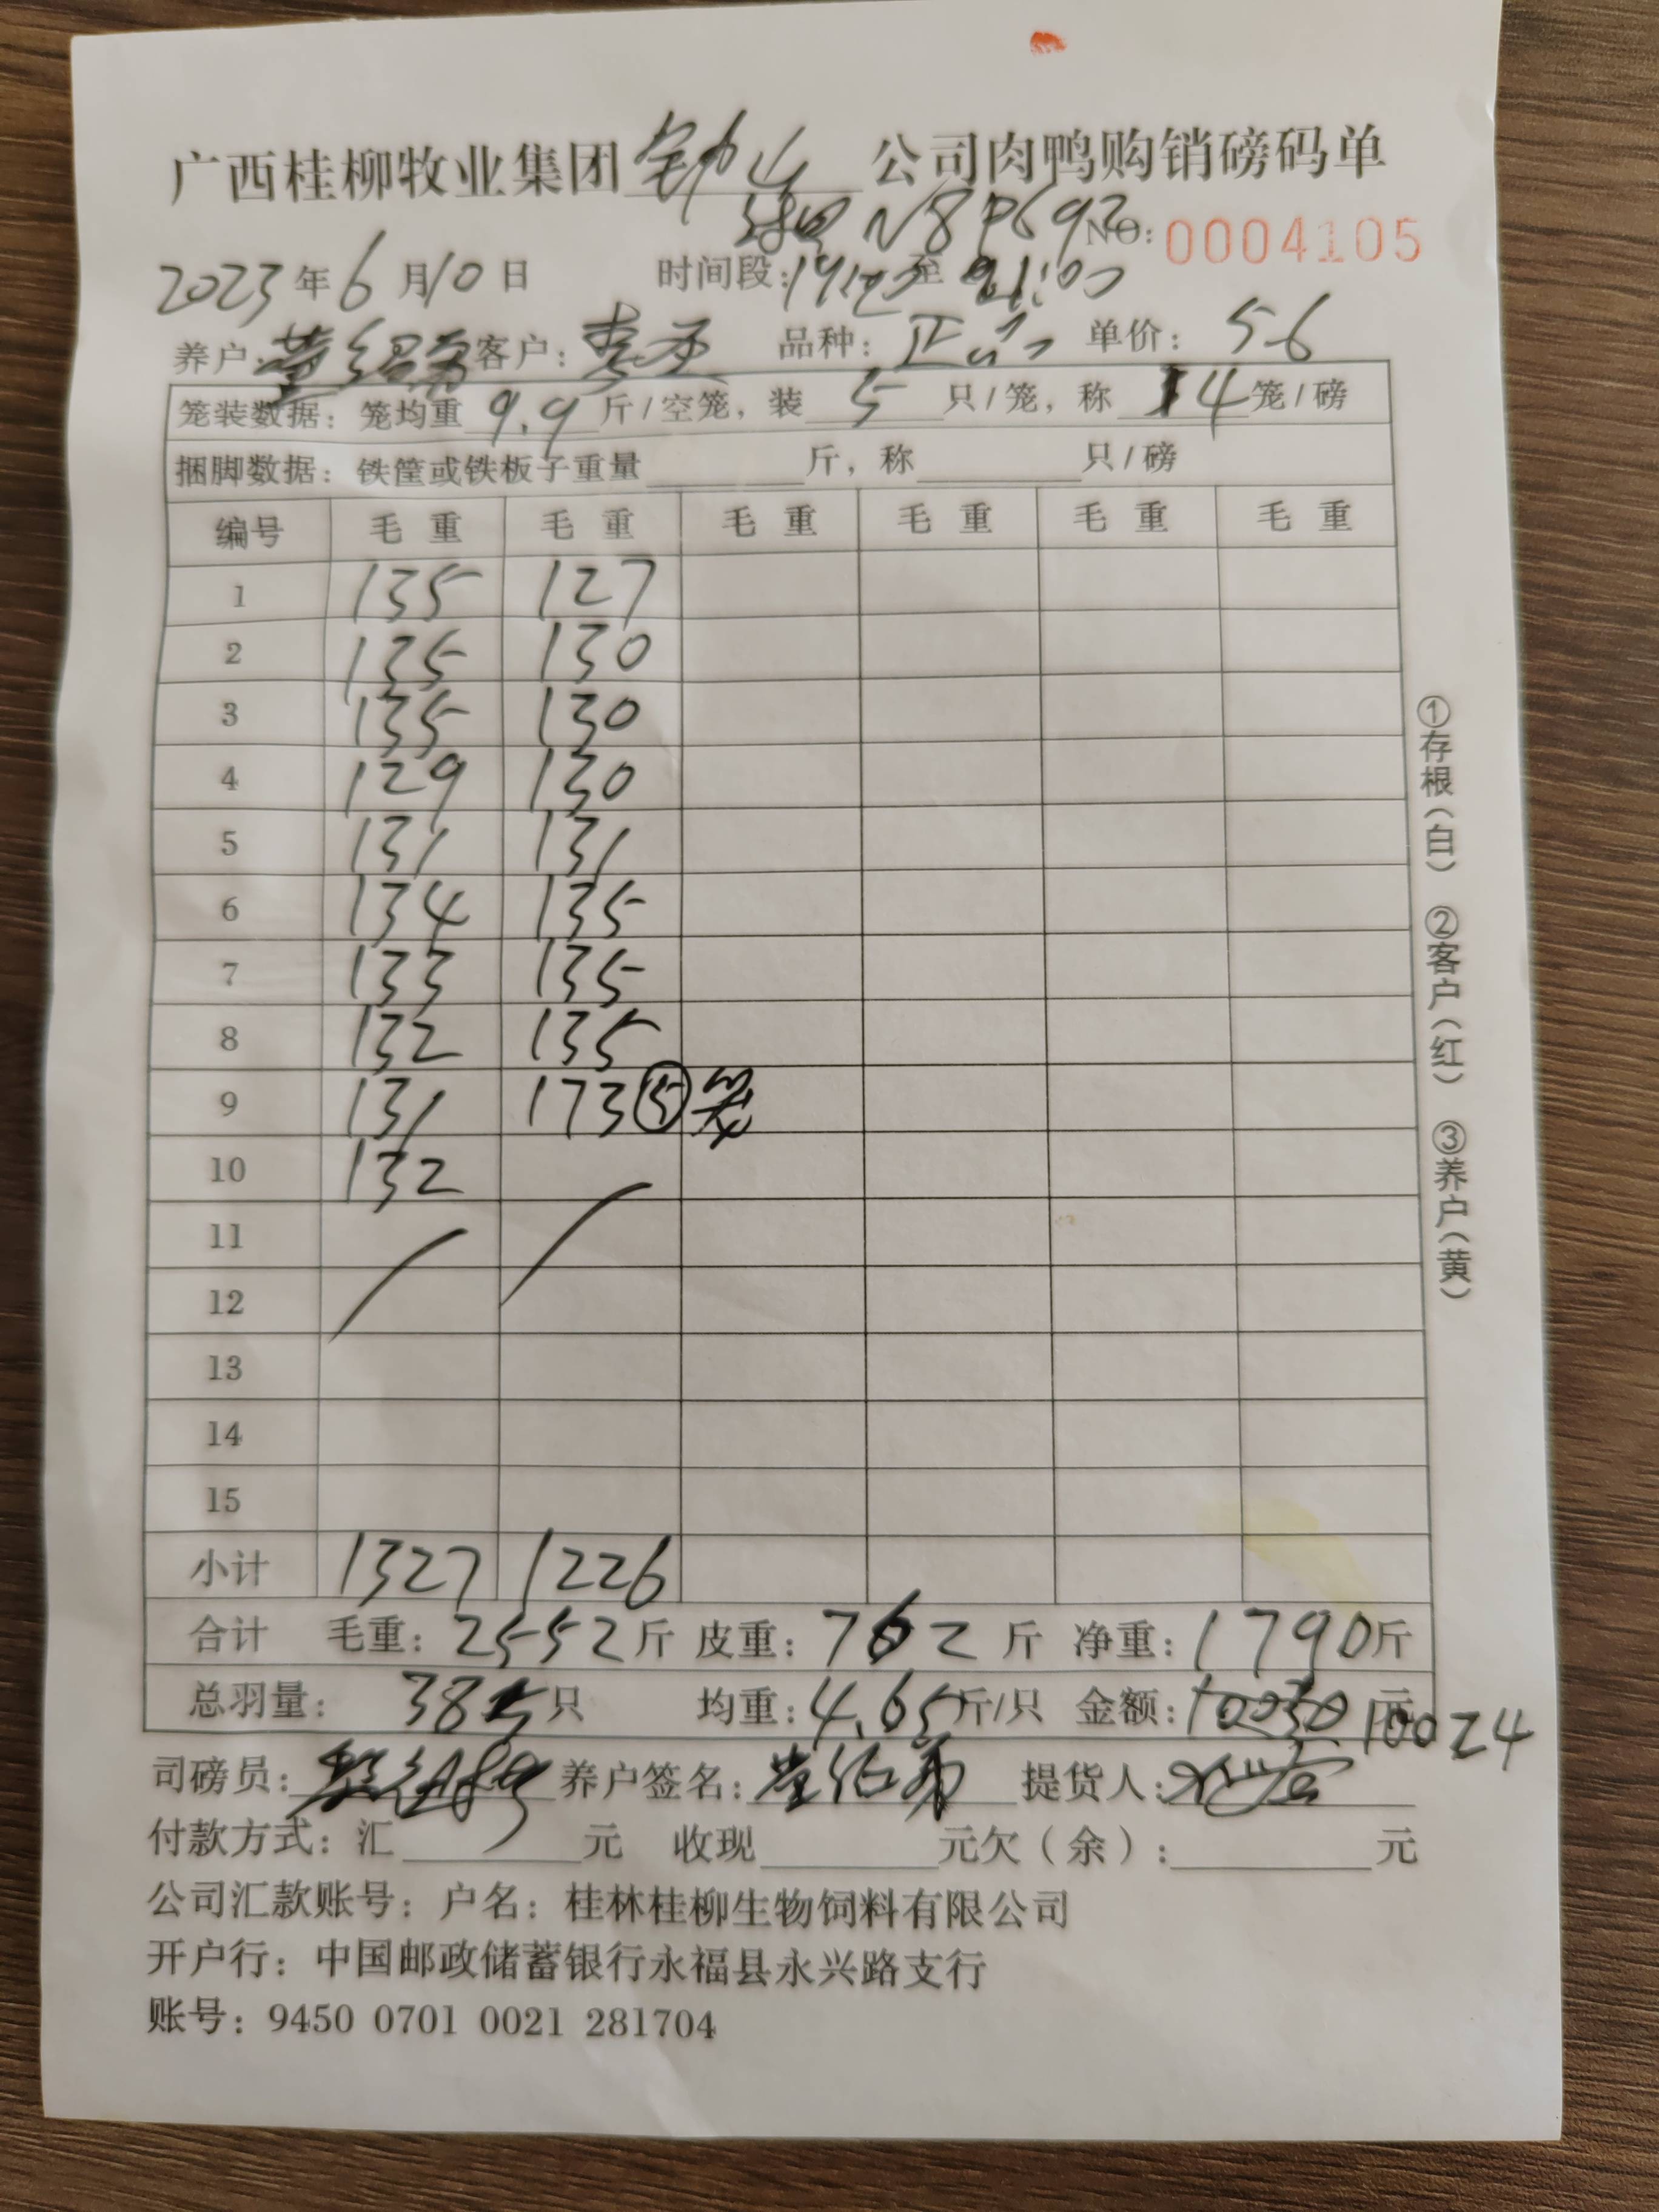 广西桂柳牧业集团钟山公司肉鸭购销磅码单
湘N8P692
NO: 0004105
2023年6月10日 时间段: 19:23至21:00
养户: 客户: 品种: 正品 单价: 5.6
笼装数据: 笼均重9.9斤/空笼, 装5只/笼, 称4笼/磅
捆脚数据: 铁筐或铁板子重量 斤, 称 只/磅
编号 毛重 毛重 毛重 毛重 毛重 毛重
1 135 127
2 135 130
3 135 130
4 129 130
5 131 131
6 134 135
7 133 135
8 132 135
9 131 173 ⑤笼
10 132
11
12
13
14
15
小计 1327 1226
合计 毛重: 2552斤 皮重: 762斤 净重: 1790斤
总羽量: 385只 均重: 4.65斤/只 金额: 10030元 10024
司磅员: 养户签名: 提货人:
付款方式: 汇 元 收现 元欠(余): 元
公司汇款账号: 户名: 桂林桂柳生物饲料有限公司
开户行: 中国邮政储蓄银行永福县永兴路支行
账号: 9450 0701 0021 281704
①存根(白) ②客户(红) ③养户(黄)